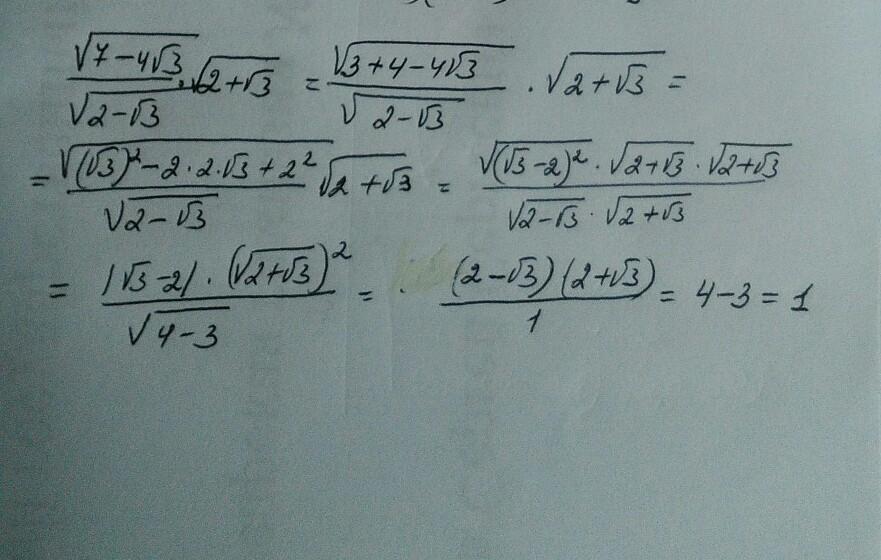 √(7-4√3)/√(2-√3) · √(2+√3) = √(3+4-4√3)/√(2-√3) · √(2+√3) =
= √((√3)²-2·2·√3+2²)/√(2-√3) √(2+√3) = √((√3-2)²) · √(2+√3) · √(2+√3)/(√(2-√3) · √(2+√3))
= |√3-2| · (√(2+√3))²/√(4-3) = · (2-√3)(2+√3)/1 = 4-3 = 1